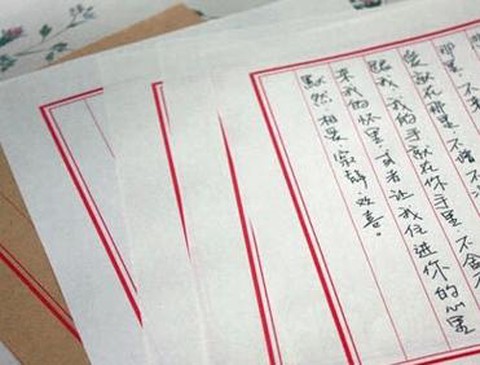 那里 不来
爱就在那里 不增不
跟我 我的手就在你手里 不舍
来我的怀里 或者让我住进你的心里
默然 相爱 寂静 欢喜。